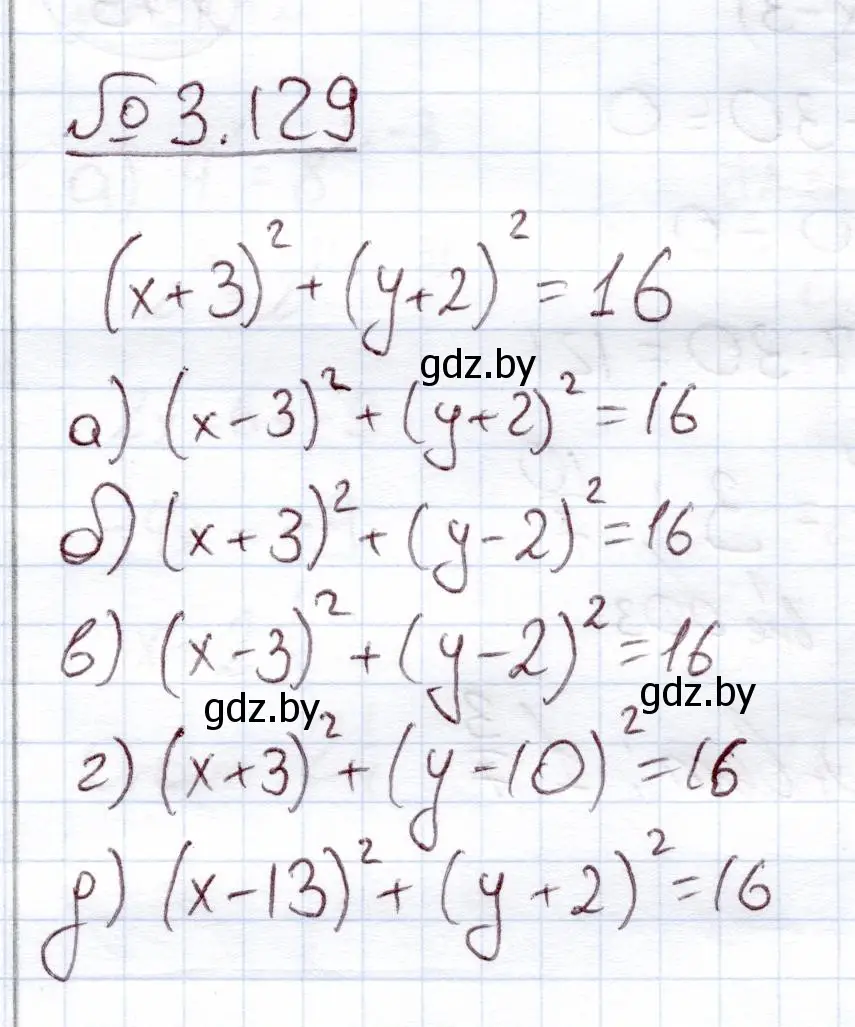 № 3.129
(x+3)² + (y+2)² = 16
gdz.by
а) (x-3)² + (y+2)² = 16
б) (x+3)² + (y-2)² = 16
в) (x-3)² + (y-2)² = 16
gdz.by gdz.by
г) (x+3)² + (y-10)² = 16
д) (x-13)² + (y+2)² = 16